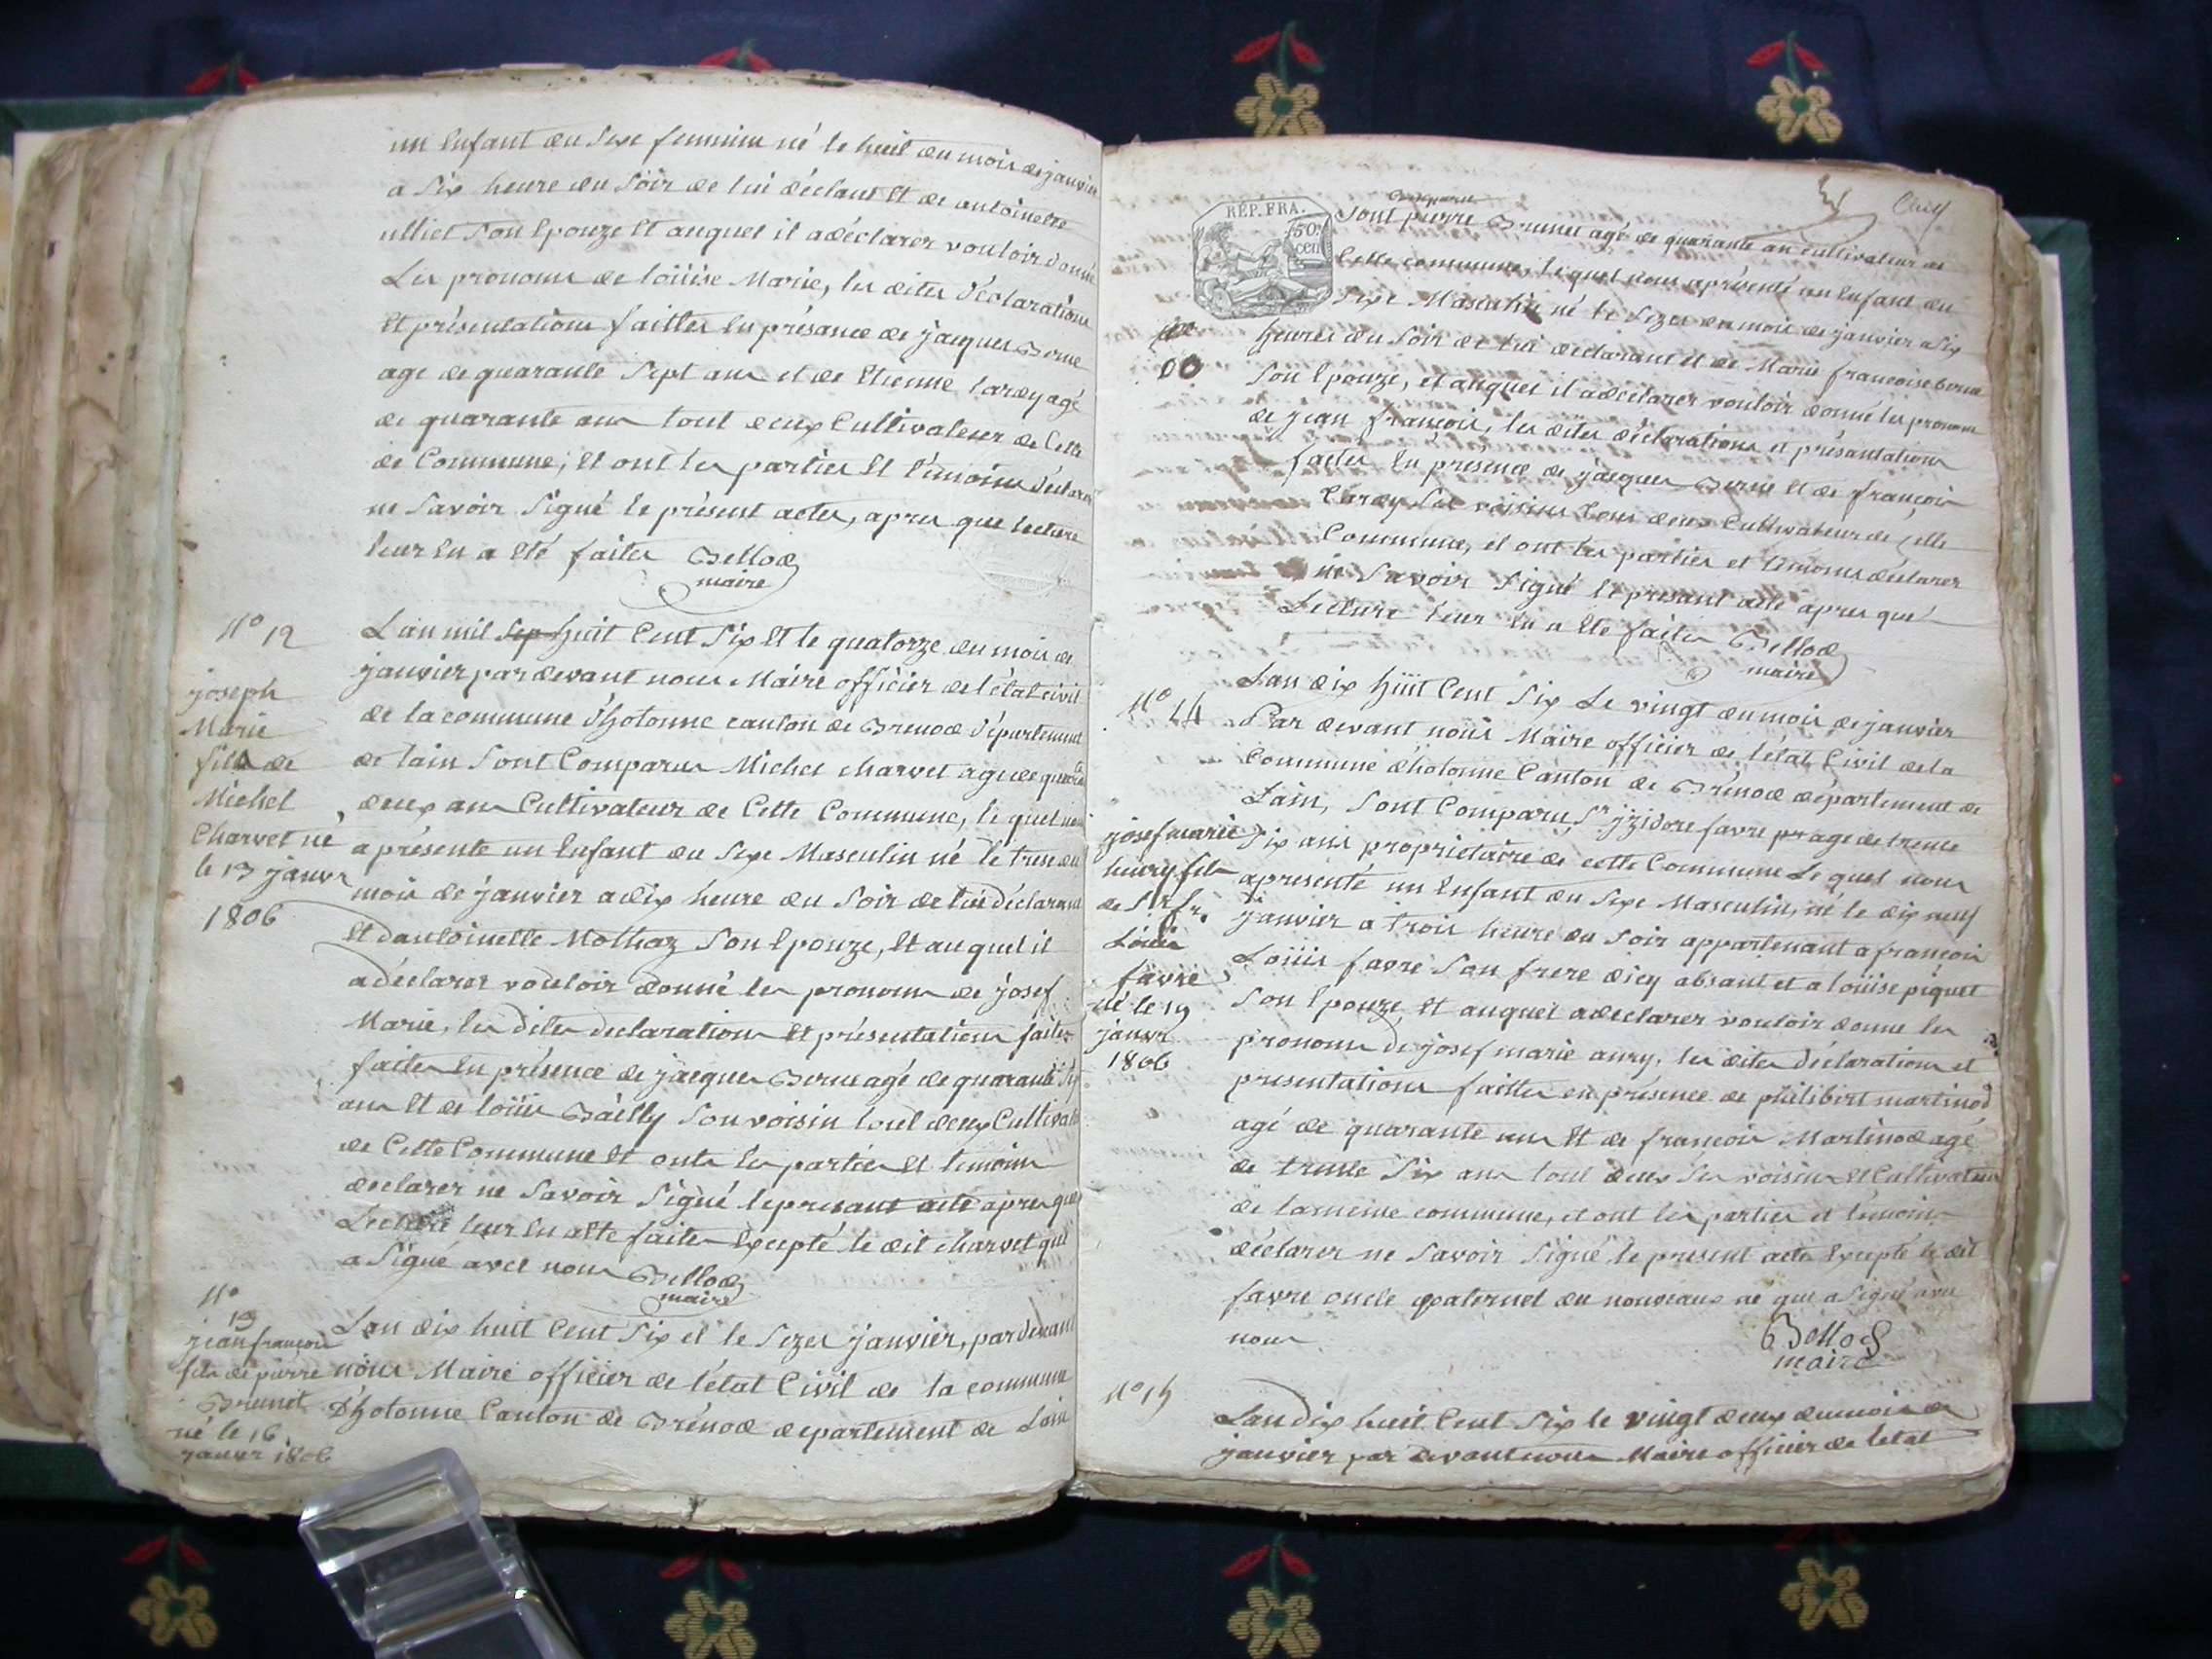 un Enfant du Sexe feminin né le huit du mois de janvier
a Six heure du Soir de lui déclant Et de antoinette
ulliet Son Epouze Et auquel il adéclarer vouloir donné
Les pronoms de loüise Marie, les dites déclarations
Et présentations faittes En présance de jacques Borne
age de quarante Sept ans et de Etienne lardy agé
de quarante ans tout deux Cultivateur de Cette
de Commune, Et ont les parties Et témoins déclarer
ne Savoir Signé le présent actes, apres que lecture
leur En a Eté faites Bellod
maire
N° 12
joseph
Marie
fils de
Michel
Charvet né
le 13 janvr
1806
Lan mil Sep huit Cent Six Et le quatorze du mois de
janvier par devant nous Maire officier de létat civil
de la commune d'hotonne canton de Brenod département
de lain Sont Comparus Michel charvet agé de quarante
deux ans Cultivateur de Cette Commune, le quel nous
a présente un Enfant du Sexe Masculin né le treze du
mois de janvier a dix heure du Soir de lui déclarant
Et dantoinette Mothaz Son Epouze, Et au quel il
adéclarer vouloir donné les pronoms de josef
Marie, les dites declarations Et présentations faites
faites En présence de jacques Borne agé de quarante Six
ans Et de loüis Bailly Son voisin tout deux Cultivat
de Cette Commune Et onts les parties Et temoins
déclarer ne Savoir Signé le present acte apres que
Lecture leur En a Ete faites Excepté le dit charvet qui
a Signé avec nous Bellod
maire
N°
13
jean françois
fils de pierre
Brunet
né le 16
janvr 1806
Lan dix huit Cent Six et le Sezes janvier, par devant
nous Maire officier de létat Civil de la commune
D'hotonne Canton de Brénod departement de Lain
REP. FRA.
50
cen
comparu
Sont pierre Brunet agé de quarante an cultivateur de
Cette commune, le quel nous aprésenté un Enfant du
Sexe Masculin né le Sezes du mois de janvier a Six
heures du Soir de lui declarant et de Marie francoise borne
Son Epouze, et auquel il adéclarer vouloir donné les pronoms
de jean françois, les dites déclarations et présantations
faites En présence de jacques Borne Et de françois
Lardy Ses voisins tous deux Cultivateur de celle
Commune, et ont les parties et témoins déclarer
ne Savoir Signé le présant acte apres que
Lecture leur En a Eté faites Bellod
maire
N° 14
josef marie
henry fils
de S.r fr.
Loüis
favre
né le 19
janvr
1806
Lan dix hüit Cent Six Le vingt du mois de janvier
Par devant nous Maire officier de létat Civil de la
Commune d'hotonne Canton de Brénod département de
Lain, Sont Comparu, Sr yzidore favre age de trente
Six ans propriétaire de cette Commune Le quel nous
apresenté un Enfant du Sexe Masculin, né le dix neuf
janvier a trois heure du Soir appartenant a francois
Loüis favre Son frere dicy absant et a loüise piquet
Son Epouze, Et auquel adéclarer vouloir donne les
pronoms de josef marie anry, les dites déclarations et
presentations faittes en présence de philibert martinod
agé de quarante ans Et de francois Martinod agé
de trente Six ans tout deux Ses voisins Et Cultivateur
de la meme commune, et ont les parties et témoins
déclarer ne Savoir Signé le present actes Excepté le dit
favre oncle paternel du nouveaux né qui a Signé avec
nous
Bellod
maire
N° 15
Lan dix huit Cent Six le vingt deux du mois de
janvier par devant nous Maire officier de letat